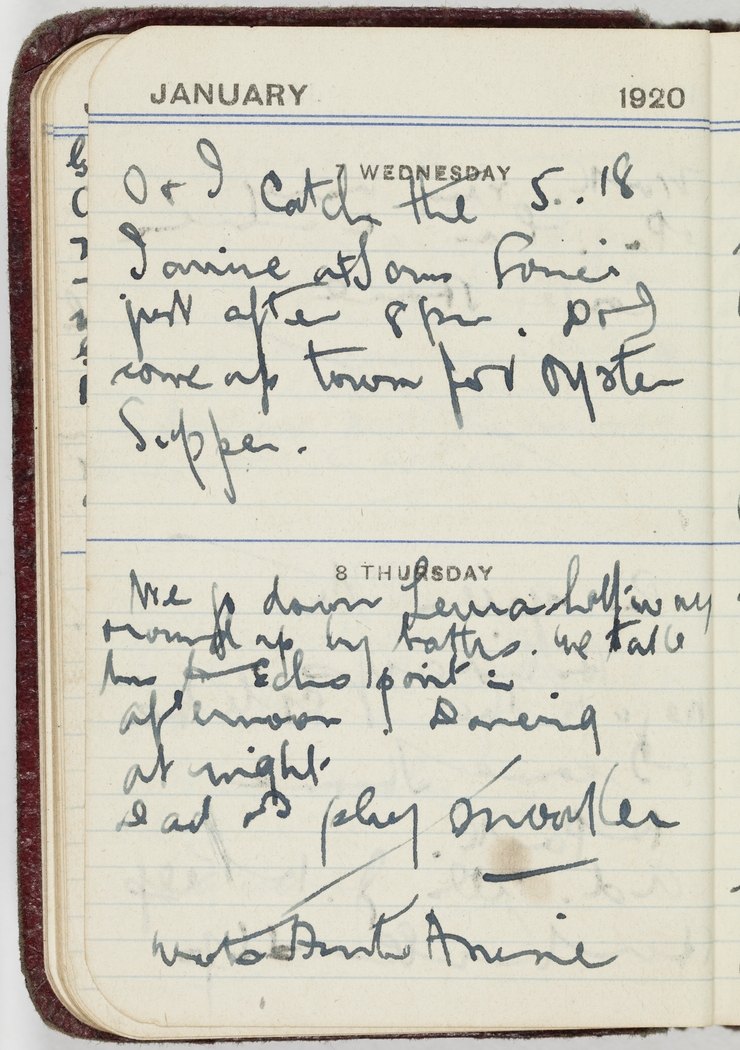 JANUARY 1920
7 WEDNESDAY
D & I catch the 5.18
I arrive at
just after 8 pm. D & I
come up town for oyster
Supper.
8 THURSDAY
We go down Leura half way
round up by baths. We take
bus to Echo point in
afternoon. Dancing
at night.
play snooker
wrote Aunt Annie